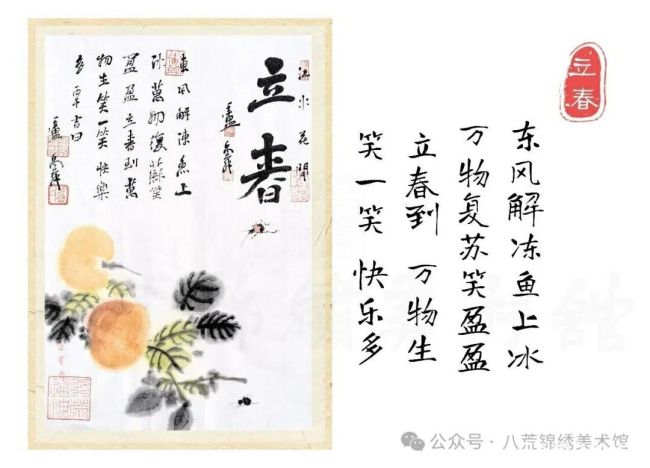 立春
東风解凍魚上
冰萬物復蘇笑
盈盈立春到萬
物生笑一笑快樂
多
吉日
立春
东风解冻鱼上冰
万物复苏笑盈盈
立春到 万物生
笑一笑 快乐多
公众号·八荒锦绣美术馆